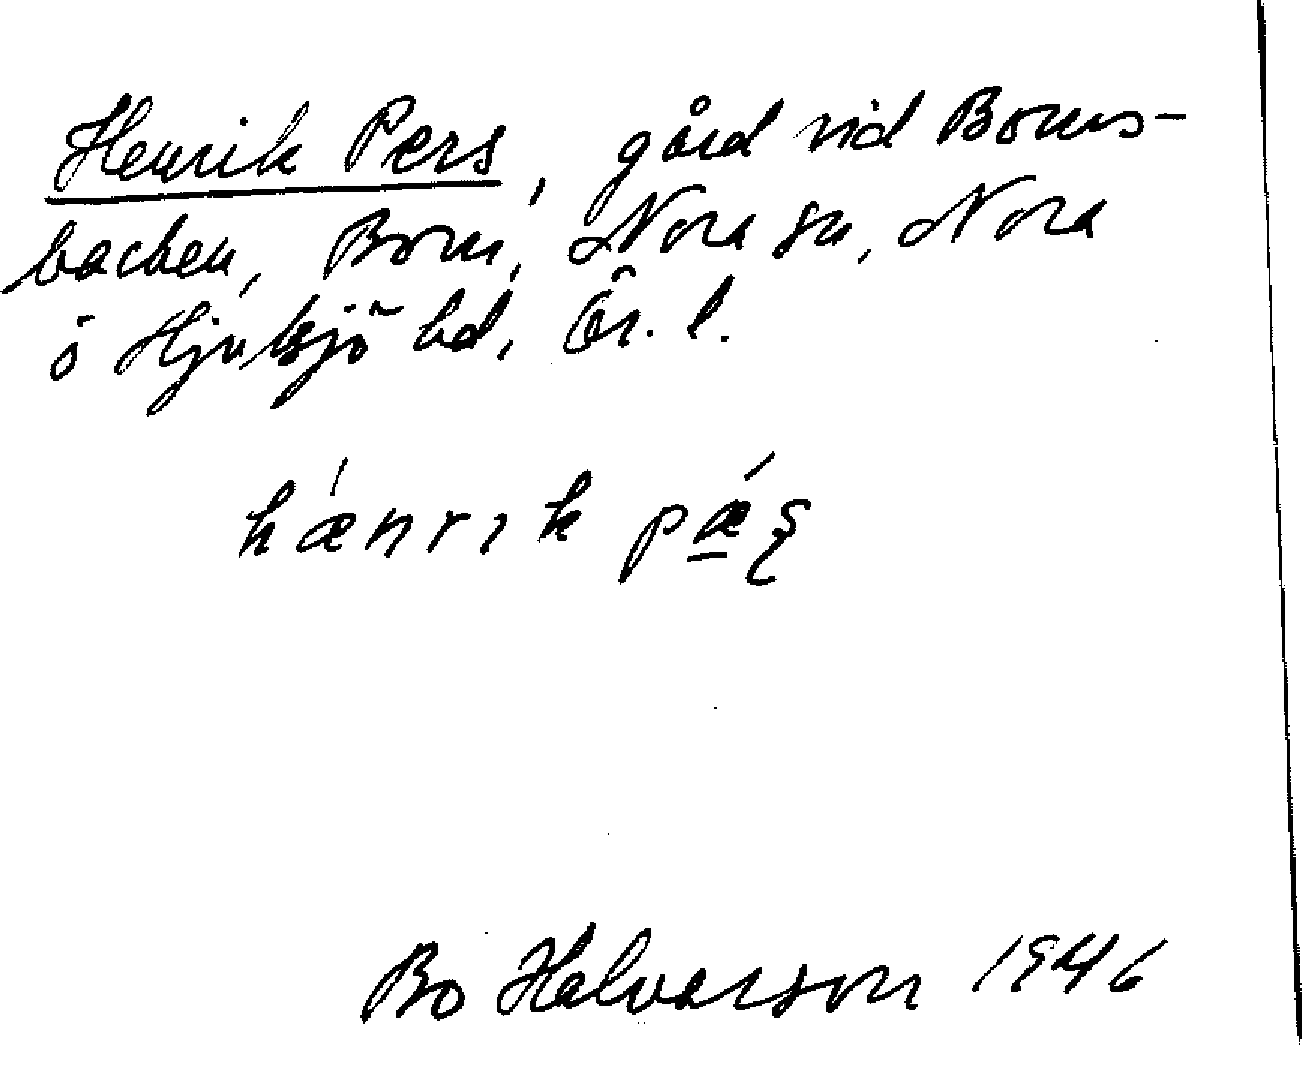 Henrik Pers, gård vid Borns-
backen, Born, Nora sn, Nora
o Hjulsjö bd, Ör. l.
hǽnrık pǽʂ
Bo Halvarson 1946